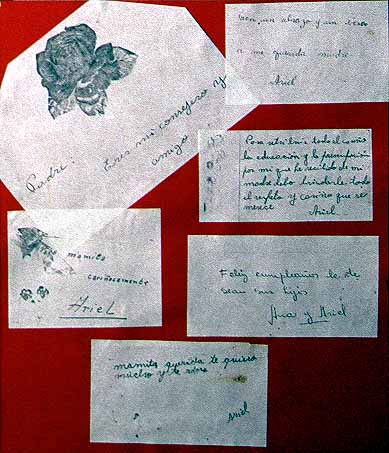 Padre: Eres mi consejero y
amigo
Con un abrazo y un beso
a mi querida madre
Ariel
Para retribuir todo el cariño
la educación y la
por mi que he recibido de mi
madre debo brindarle todo
el respeto y cariño que se
merece
Ariel.
mamita
cariñosamente
Ariel
Feliz cumpleaños le de
sean sus hijos
Ana y Ariel
mamita querida te quiero
mucho y te adoro
Ariel